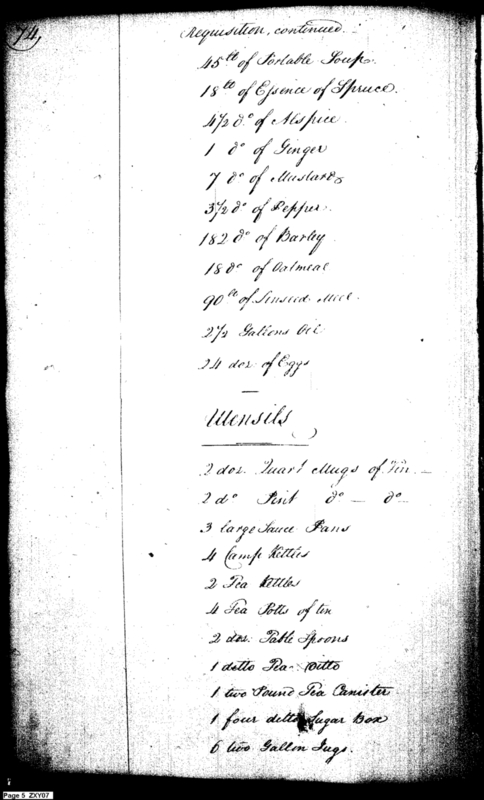 74
Requisition, continued.—
45 lb of Portable Soup.
18 lb of Essence of Spruce.
4½ do of Alspice
1 do of Ginger
7 do of Mustard
3½ do of Pepper.
182 do of Barley
18 do of Oatmeal
90 lb of Linseed Meal.
2½ Gallons Oil
24 doz of Eggs
Utensils
2 doz. Quart Mugs of Tin —
2 do Pint do — do —
3 large Sauce Pans
4 Camp Kettles
2 Tea Kettles
4 Tea Potts of tin
2 doz. Table Spoons
1 ditto Tea ditto
1 two Pound Tea Canister
1 four ditto Sugar Box
6 two Gallon Jugs.
Page 5 ZXY07